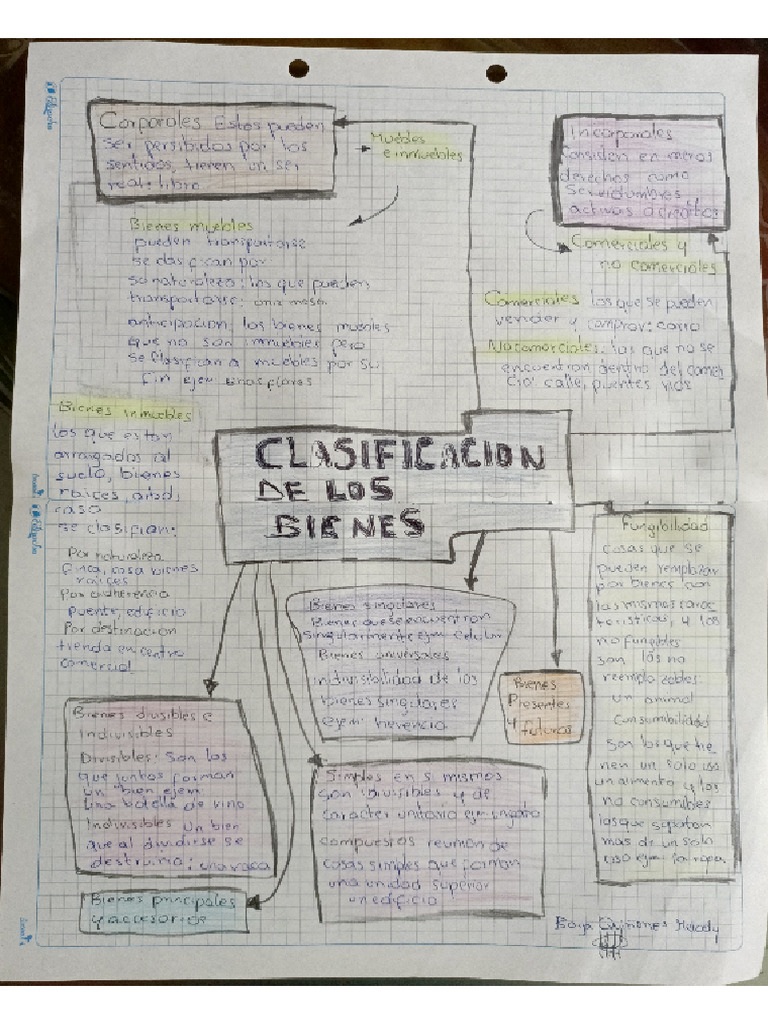 Corporales Estos pueden
ser persibidos por los
sentidos, tienen un ser
real: libro
Muebles
e inmuebles
Incorporales
Consisten en meros
derechos como
servidumbres
activas o creditos
Bienes muebles
pueden transportarse
se clasifican por
su naturaleza: los que pueden
transportarse: una mesa
anticipacion: los bienes muebles
que no son inmuebles pero
se clasifican a muebles por su
fin ejem unas flores
Comerciales y
no comerciales
Comerciales los que se pueden
vender y comprar: carro
No comerciales: los que no se
encuentran dentro del comer
cio: calle, puentes
Bienes inmuebles
los que estan
arraigados al
suelo, bienes
raices,
casa
se clasifican:
Por naturaleza
finca, casa bienes
raices
Por adherencia
puente, edificio
Por destinacion
tienda en centro
comercial
CLASIFICACION
DE LOS
BIENES
Fungibilidad
cosas que se
pueden remplazar
por bienes con
las mismas carac
teristicas, y los
no fungibles
son los no
reemplazables:
un animal
Consumibilidad
Son los que tie
nen un solo uso
un alimento y los
no consumibles
los que soportan
mas de un solo
uso ejem la ropa
Bienes singulares
Bienes que se encuentran
singularmente ejem celular
Bienes universales
indivisibilidad de los
bienes singulares
ejem: herencia
Bienes
Presentes
y futuros
Bienes divisibles e
Indivisibles
Divisibles: Son los
que juntos forman
un bien ejem
una botella de vino
Indivisibles un bien
que al dividirse se
destruiria: una vaca
Simples en si mismos
son indivisibles y de
caracter unitario ejem un gato
compuestos reunion de
cosas simples que forman
una unidad superior
un edificio
Bienes principales
y accesorios
Quiñones Melody